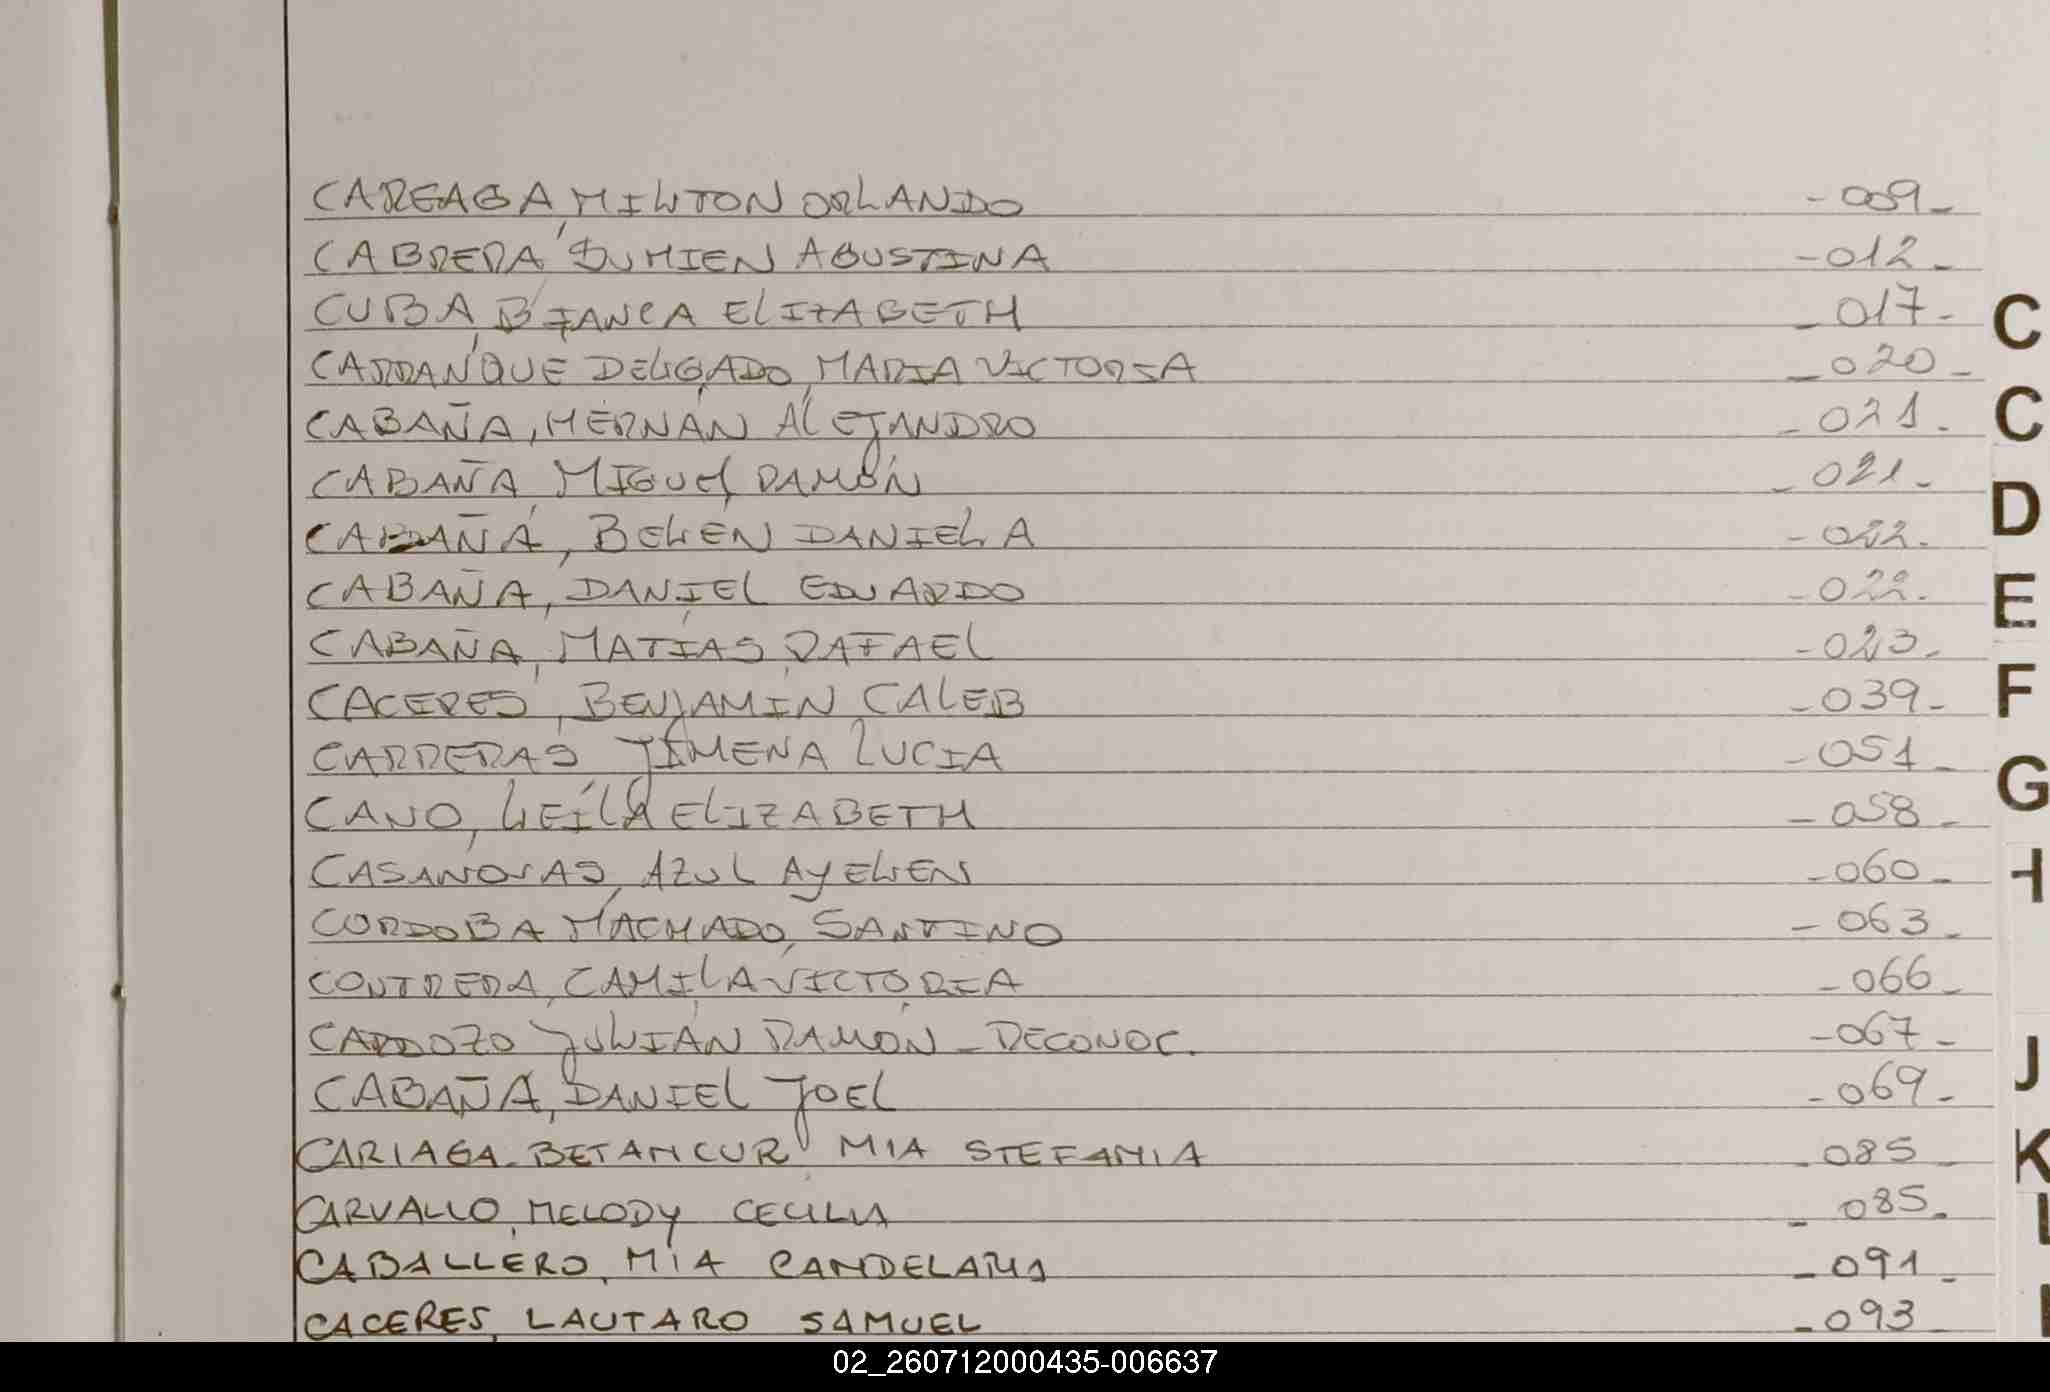 CAREAGA, MILTON ORLANDO -009-
CABRERA DUMIEN AGUSTINA -012-
CUBA, BIANCA ELIZABETH -017-
CARRANQUE DELGADO, MARIA VICTORIA -020-
CABAÑA, HERNÁN ALEJANDRO -021-
CABAÑA, MIGUEL RAMÓN -021-
CABAÑA, BELEN DANIELA -022-
CABAÑA, DANIEL EDUARDO -022-
CABAÑA, MATÍAS RAFAEL -023-
CACERES, BENJAMIN CALEB -039-
CARRERAS JIMENA LUCIA -051-
CANO, LEÍLA ELIZABETH -058-
CASANOVAS, AZUL AYELEN -060-
CORDOBA MACHADO, SANTINO -063-
CONTRERA, CAMILA VICTORIA -066-
CARDOZO JULIÁN RAMÓN - DECONOC. -067-
CABAÑA, DANIEL JOEL -069-
CARIAGA BETANCUR MIA STEFANIA -085-
CARVALLO, MELODY CECILIA -085-
CABALLERO, MIA CANDELARIA -091-
CACERES, LAUTARO SAMUEL -093-
C
C
D
E
F
G
H
J
K
L
02_260712000435-006637